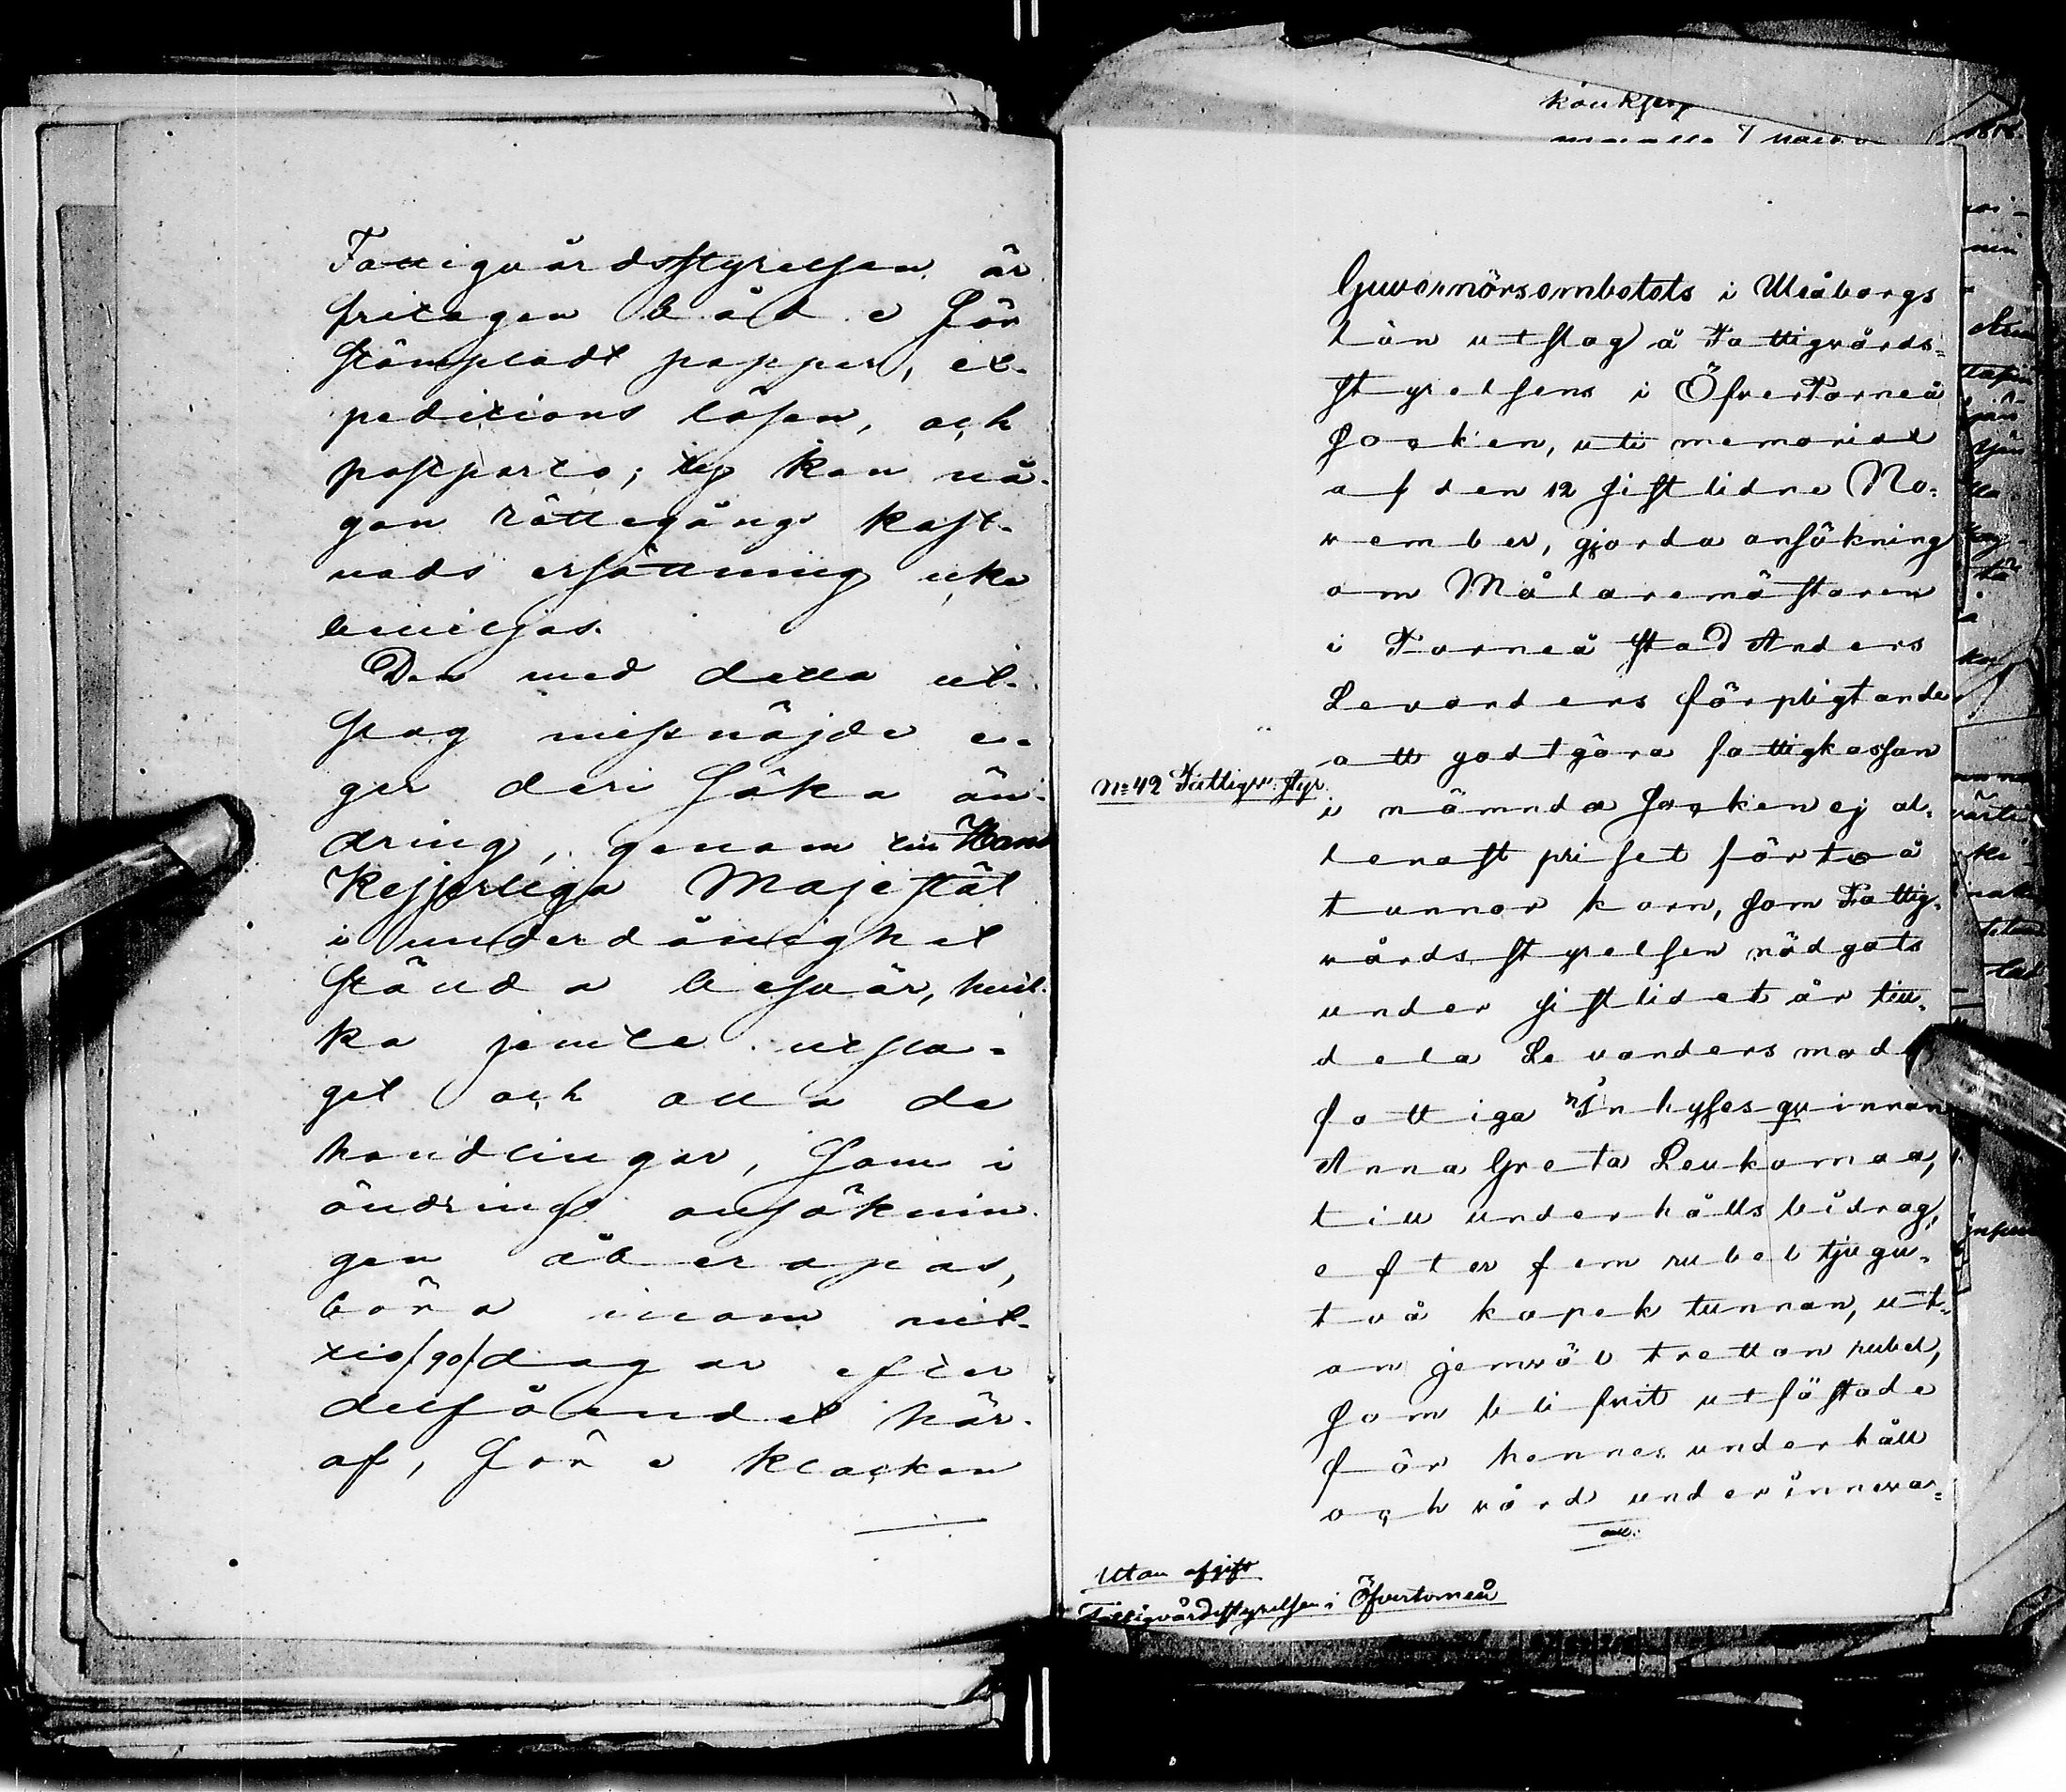 Fattigvårdsstyrelsen är
fritagen både för
stämpladt papper, ex-
peditions lösen, och
postporto; ty kan nå-
gon rättegångs kost-
nads ersättning icke
beviljas.
Den med detta ut-
slag missnöjde e-
ger deri söka än-
dring, genom till Hans
Kejserliga Majestät
i underdånighet
stälda besvär, hvil-
ka jemte utsla-
get och alla de
handlingar, som i
ändrings ansöknin-
gen åberopas,
böra inom nit-
tio /90/ dagar efter
delfåendet här-
af, före klockan
Guvernörsembetets i Uleåborgs
län utslag å Fattigvårds-
styrelsens i Öfvertorneå
socken, uti memorial
af den 12 sistlidne No-
vember, gjorda ansökning
om Målaremästaren
i Torneå stad Anders
Levanders förpligtande
att godtgöra fattigkassan
No 42 Fattigv: styr.
i nämnda socken ej al-
lenast priset för två
tunnor korn, som Fattig-
vårdsstyrelsen nödgats
under sistlidet år till-
dela Levanders moder
fattiga Inhysesqvinnan
Anna Greta Leukomaa,
till underhållsbidrag,
efter fem rubel tjugu-
två kopek tunnan, ut-
an jemväl tretton rubel,
som blifvit utfästade
för hennes underhåll
och vård under inneva-
Utan afgift
Fattigvårdsstyrelsen i Öfvertorneå